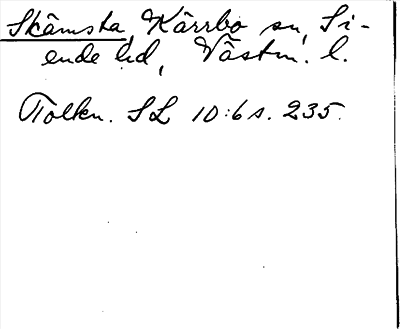 Skämsta, Kärrbo sn, Si-
ende hd, Västm. l.
Tolkn. SL 10:6 s. 235.